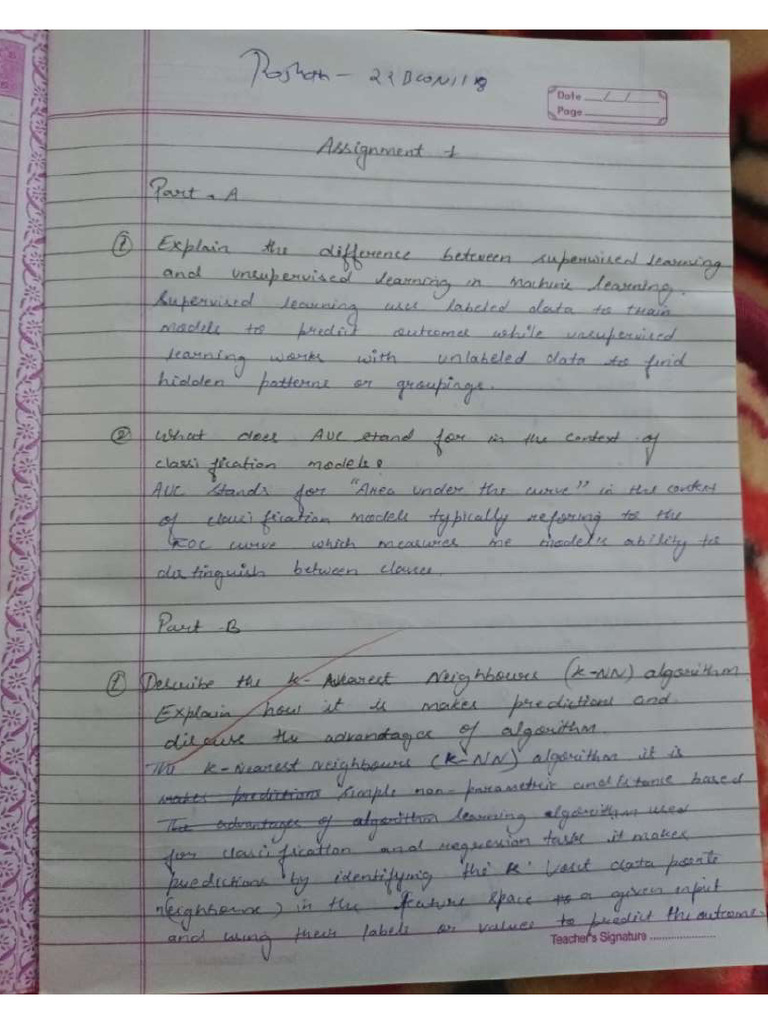 Roshan - 22BCON1118
Date / /
Page
Assignment 1
Part - A
① Explain the difference between supervised learning
and unsupervised learning in machine learning.
Supervised learning uses labeled data to train
models to predict outcomes while unsupervised
learning works with unlabeled data to find
hidden patterns or groupings.
② What does AUC stand for in the context of
classification models?
AUC stands for "Area under the curve" in the context
of classification models typically refering to the
ROC curve which measures the model's ability to
distinguish between classes.
Part - B
① Describe the k-Nearest Neighbours (k-NN) algorithm.
Explain how it is makes predictions and
discuss the advantages of algorithm.
The k-Nearest Neighbours (k-NN) algorithm it is
makes predictions simple non-parametric and distance based
The advantages of algorithm learning algorithm used
for classification and regression tasks it makes
predictions by identifying the k data points
Neighbours) in the feature space to a given input
and using their labels or values to predict the outcome.
Teacher's Signature